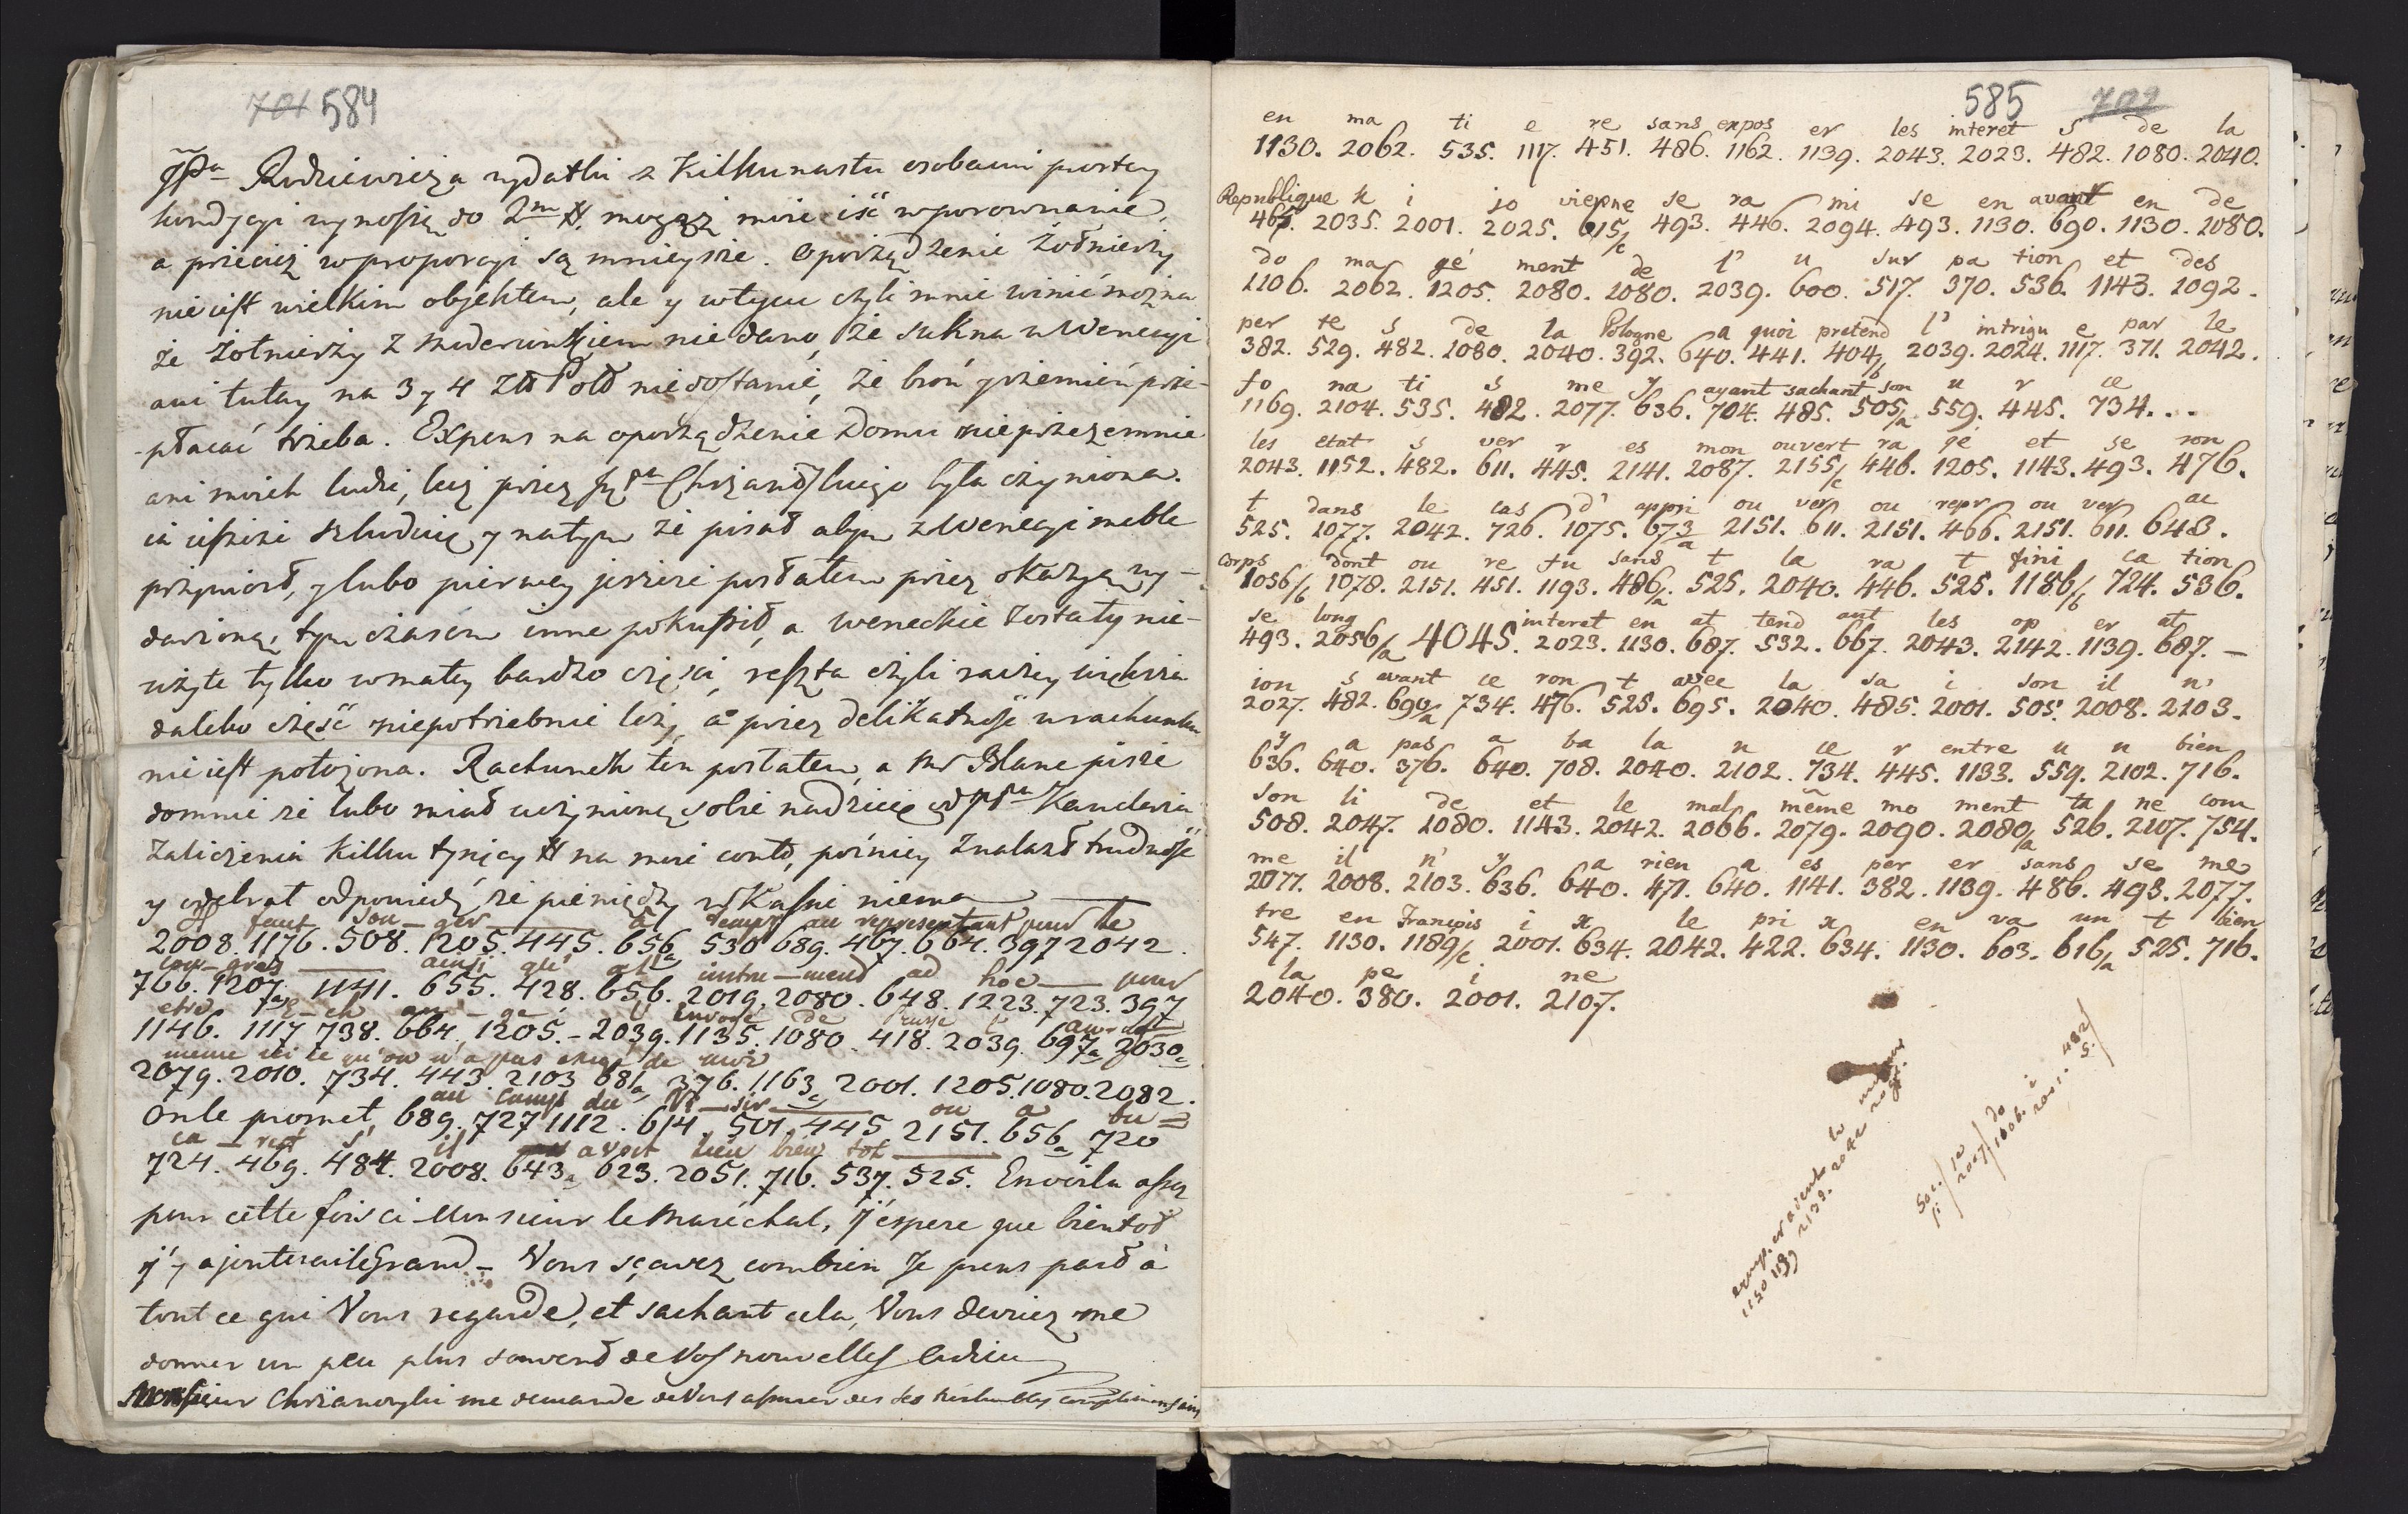 701 584
JPa Rodziewicza wydatki z kilkunastu osobami portcy
kondycyi wynoszą do 2m #. mogąż może iść wporownanie,
a przecież wproporcyi są mnieysze. oporządzenie żołnierzy
nie iest wielkim objektem, ale y wtym czyli mnie winić można
że żołnierzy z moderunkiem nie dano, że sukna w Wenecyi
ani tutay na 3 y 4 Zł Pold nie dostanie, że broń y rzemień prze-
-płacać trzeba. Expens na oporządzenie Domu nie przezemnie
ani moich ludzi, lecz przez JPa Chrzanowskiego była czyniona.
ia ieszcze szkoduię y natym że pisał abym z Wenecyi meble
przyniosł, y lubo pierwey jeszcze posłałem przez okazyą wy-
darzoną, tym czasem inne pokupił, a weneckie zostały nie-
użyte tylko wmałey bardzo części, reszta czyli raczey większa
daleko część niepotrzebnie leży, a przez delikatność w rachunku
nie iest położona. Rachunek ten posłałem, a Mr Blanc pisze
domnie że lubo miał uczynioną sobie nadzieię od JPa Kanclerza
zaliczenia kilku tysięcy # na moie conto, poźniey znalazł trudność
y odebrał odpowiedź, że pieniędzy w Kassie niema
Il faut son - ger à temps au representant pour le
2008. 1176. 508. 1205. 445. 656a 530 689. 467. 664. 397 2042.
con - gres ainsi qu' à l' instru - ment ad hoc pour
766. 1207a 1141. 655. 428. 656. 2019. 2080. 648. 1223. 723. 397
etre e - ch an - gé l' Envoyé de Russie l' aur oit
1146. 1117 738. 664. 1205. - 2039. 1135. 1080. 418. 2039. 697a 2030c
meme ici ce qu'on n'a pas exigé de moi
2079. 2010. 734. 443. 2103 681a 376. 1163c 2001. 1205. 1080. 2082.
au camp du Vi - sir ou a bu =
On le promet, 689. 727 1112. 614. 501. 445 2151. 656a 720
ca - rest s' il avoit lieu bien tot
724. 469. 484. 2008. 643a 623. 2051. 716. 537. 525. En voila assez
pour cette fois ci Monsieur le Maréchal, j'espere que bientot
j'y ajouterai le Grand - Vous sçavez combien Je prens pard à
tout ce qui Vous regarde, et sachant cela, Vous devriez me
donner un peu plus souvend de Vos nouvelles adieu
Monsieur Chrzanowski me demande de Vous assurer de ses très humbles complimens
585 702
en ma ti e re sans expos er les interet s de la
1130. 2062. 535. 1117. 451. 486. 1162. 1139. 2043. 2023. 482. 1080. 2040.
Republique k i jo viepne se ra mi se en avant en de
467. 2035. 2001. 2025. 615/c 493. 446. 2094. 493. 1130. 690. 1130. 1080.
do ma gé ment de l' u sur pa tion et des
1106. 2062. 1205. 2080. 1080. 2039. 600. 517. 370. 536. 1143. 1092.
per te s de la Pologne a quoi pretend l' intrigu e par le
382. 529. 482. 1080. 2040. 392. 640. 441. 404/b 2039. 2024. 1117. 371. 2042.
fo na ti s me y ayant sachant son u r ce
1169. 2104. 535. 482. 2077. 636. 704. 485. 505/a 559. 445. 734...
les etat s ver r es mon ouvert ra gé et se ron
2043. 1152. 482. 611. 445. 2141. 2087. 2155/c 446. 1205. 1143. 493. 476.
t dans le cas d' appri ou ver ou repr ou ver ac
525. 1077. 2042. 726. 1075. 673/a 2151. 611. 2151. 466. 2151. 611. 643.
corps dont ou re fu sans t la ra t fini ca tion
1056/b 1078. 2151. 451. 1193. 486/a 525. 2040. 446. 525. 1186/b 724. 536.
se long interet en at tend ant les op er at
493. 2056/a 4045. 2023. 1130. 687. 532. 667. 2043. 2142. 1139. 687. -
ion s avant ce ron t avec la sa i son il n'
2027. 482. 690/a 734. 476. 525. 695. 2040. 485. 2001. 505. 2008. 2103.
y a pas a ba la n ce r entre u n bien
636. 640. 376. 640. 708. 2040. 2102. 734. 445. 1133. 559. 2102. 716.
son li de et le mal même mo ment ta ne com
508. 2047. 1080. 1143. 2042. 2066. 2079. 2090. 2080/a 526. 2107. 754.
me il n' y a rien a es per er sans se me
2077. 2008. 2103. 636. 640. 471. 640. 1141. 382. 1139. 486. 493. 2077.
tre en François i x le pri x en va un t bien
547. 1130. 1189/c 2001. 634. 2042. 422. 634. 1130. 603. 616/a 525. 716.
la pe i ne
2040. 380. 2001. 2107.